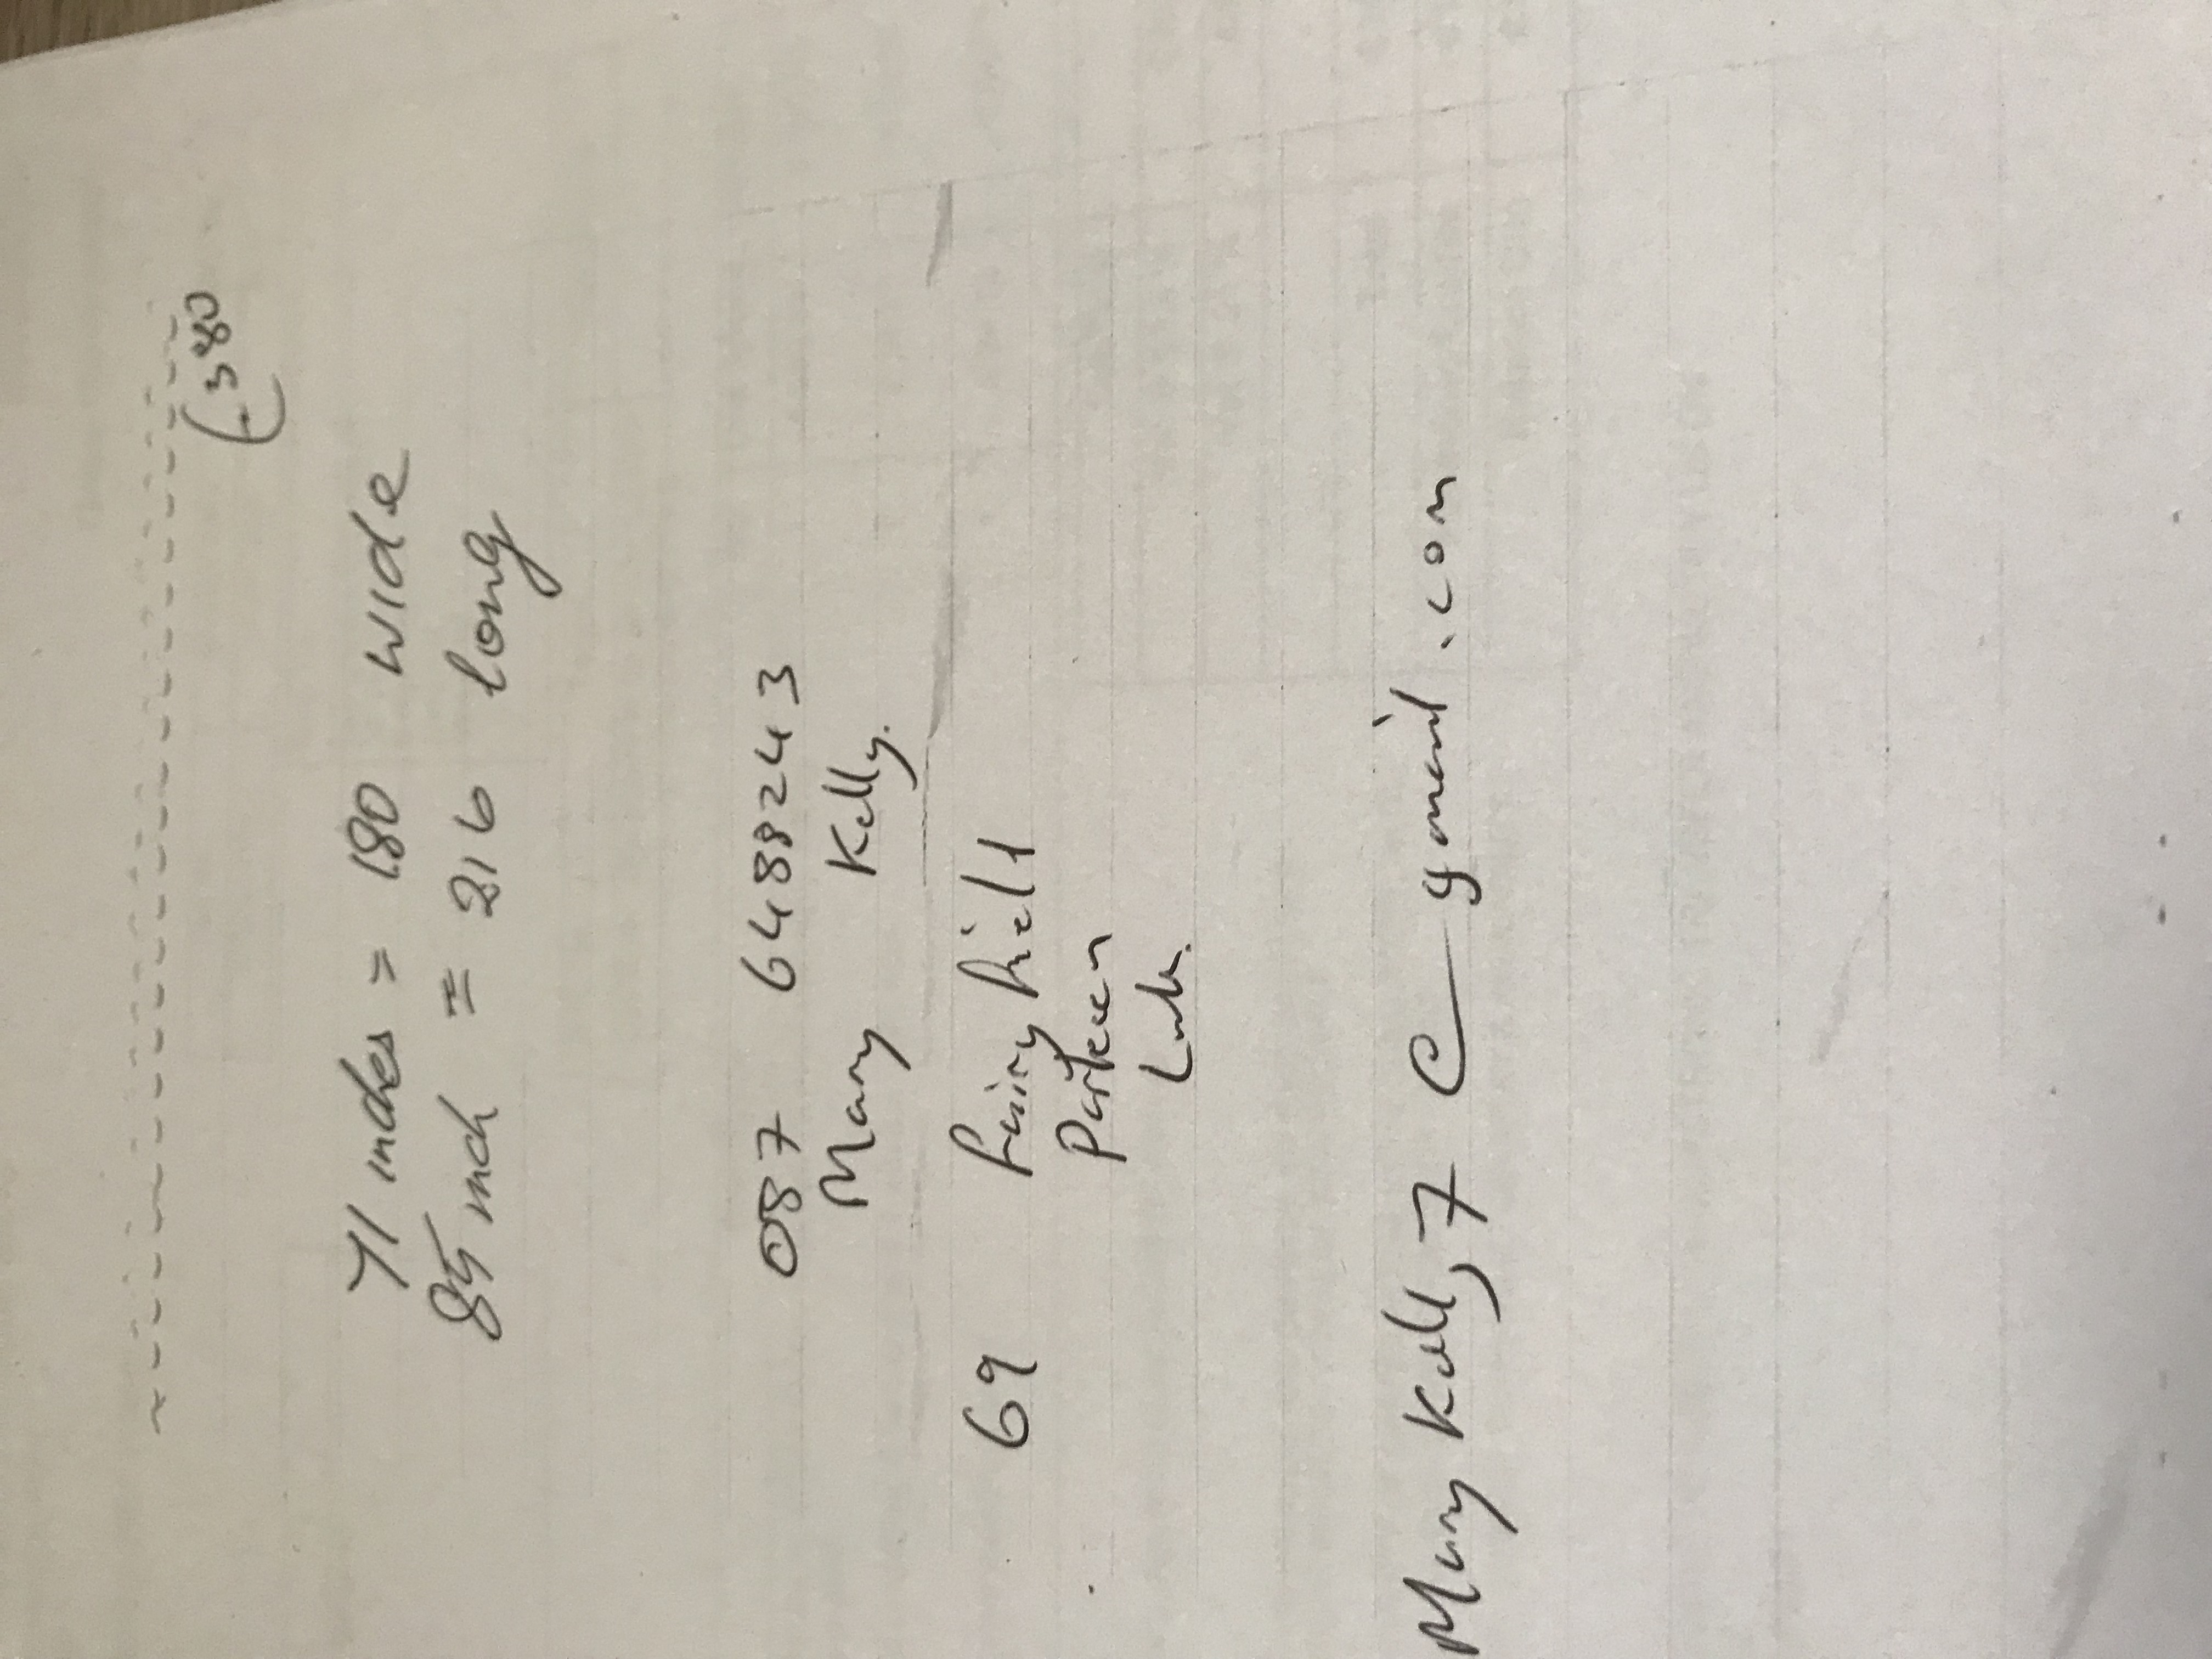 €380
71 inches = 180 wide
85 inch = 216 long
087 6488243
Mary Kelly.
69 Fairy Field
Parteen
Lmk.
Mary Kelly 7 @ gmail.com